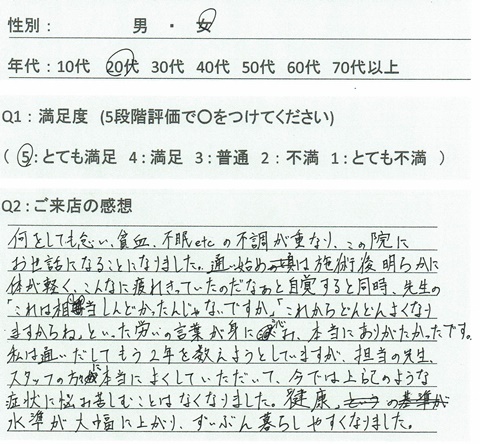 性別： 男 ・ 女
年代：10代 20代 30代 40代 50代 60代 70代以上
Q1：満足度 (5段階評価で〇をつけてください)
( 5：とても満足 4：満足 3：普通 2：不満 1：とても不満 )
Q2：ご来店の感想
何をしても 貧血、不眠etcの不調が重なり、この院に
お世話になることになりました。通い始めの頃は施術後明らかに
体が軽く、こんなに疲れきっていたのだなぁと自覚すると同時、先生の
「これは相当しんどかったんじゃないですか」「これからどんどんよくなり
ますからね」といった労いの言葉が身に 本当にありがたかったです。
私は通いだしてもう2年を数えようとしていますが、担当の先生、
スタッフの方に本当によくしていただいて、今では上記のような
症状に悩み苦しむことはなくなりました。健康の
水準が大幅に上がり、ずいぶん暮らしやすくなりました。